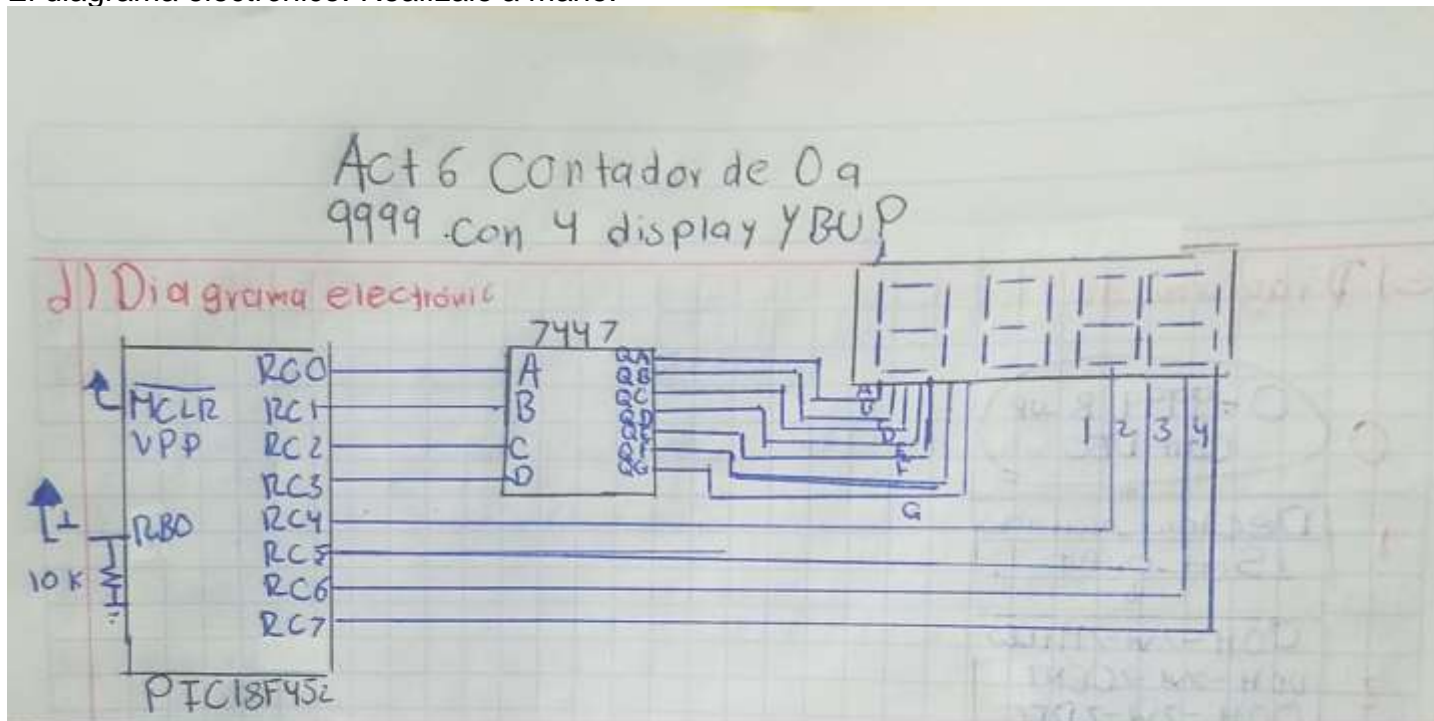 Act 6 Contador de 0 a
9999 con 4 display Y BUP
d) Diagrama electrónic
7447
RC0
RC1
RC2
RC3
RC4
RC5
RC6
RC7
MCLR
VPP
RB0
10 K
A
B
C
D
QA
QB
QC
QD
QE
QF
QG
A
B
C
D
E
F
G
1 2 3 4
PIC18F452